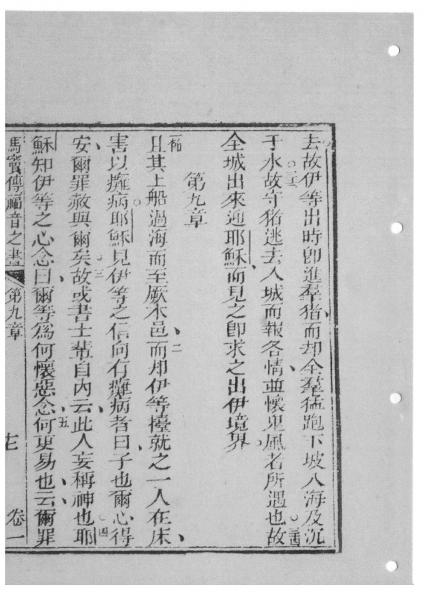 去故伊等出時即進羣猪而却全羣猛跑下坡入海及沉
于水故守猪逃去入城而報各情並懷鬼風者所遇也故
全城出來迎耶穌而見之即求之出伊境界
第九章
且其上船過海而至厥本邑而却伊等擡就之一人在床
害以癱病耶穌見伊等之信向有癱病者曰子也爾心得
安爾罪赦與爾矣故或書士輩自內云此人妄稱神也耶
穌知伊等之心念曰爾等為何懷惡念何更易也云爾罪
馬竇傳福音之書 第九章 七 卷一